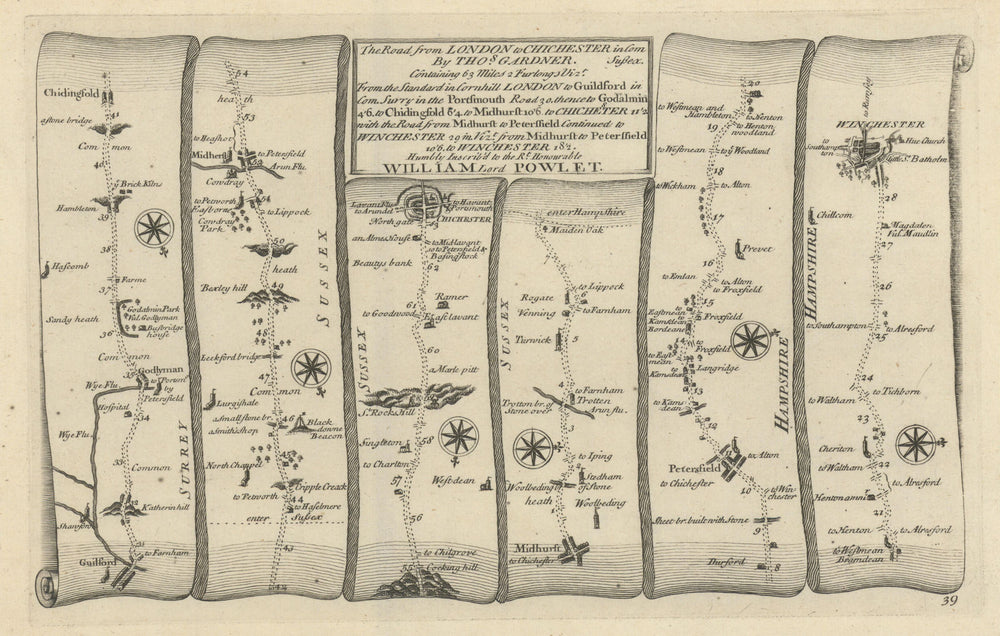 The Road from LONDON to CHICHESTER in Com
By THOS. GARDNER. Sussex.
Containing 63 Miles 2 Furlongs Vizt.
From the Standard in Cornhill LONDON to Guildford in
Com. Surry in the Portsmouth Road 30, thence to Godalmin
4'6, to Chidingfold 6'4, to Midhurst 10'6, to CHICHESTER 11'2
with the Road from Midhurst to Petersfield Continued to
WINCHESTER 29 m. Vizt. from Midhurst to Petersfield
10'6, to WINCHESTER 18'2.
Humbly Inscrib'd to the Rt. Honourable
WILLIAM Lord POWLET.
Chidingfold
a stone bridg
41
Common
40
Brick Kilns
Hambleton
39
38
Hascomb
Farme
37
Godalmin Park
Vul. Godlyman
Busbridge
house
Sandy heath
36
Common
Godlyman
35
to Portsm.
by
Petersfield
Wye Flu.
Hospital
34
Wye Flu.
33
Common
SURREY
32
Katherin hill
Shanford
to Farnham
Guilford
54
heath
53
to Heashot
Midherst
to Petersfield
52
Arun Flu.
Cowdray
to Petworth
Easborn
51
to Lippock
Cowdray
Park
50
heath
SUSSEX
Bexley hill
49
48
Leckford bridge
47
Common
Lurgishale
46
a small stone br.
a smiths shop
Black
donne
Beacon
45
North Chappel
Cripple Creack
to Petworth
44
to Haselmere
enter
Sussex
43
42
Lavant Flu.
to Arundel
to Havant
Portsmouth
North gate
CHICHESTER
an Almes House
to Midlavant
to Petersfield &
Basingstock
Beautys bank
62
Ramer
61
to Goodwood
East lavant
60
SUSSEX
a Marle pitt
St. Rocks hill
Singleton
58
to Charlton
57
Westdean
56
to Chilgrove
55
Cocking hill
enter Hampshire
Maiden Oak
to Lippock
Rogate
6
Venning
to Farnham
Turwick
5
SUSSEX
4
to Farnham
Trotton br. of
Stone over
3
Trotten
Arun flu.
to Iping
2
Stedham
of Stone
Woolbeding
heath
Woolbeding
1
Midhurst
to Chichester
20
to Westmean and
Hambleton
19
to Kenton
to Henton
woodland
to Westmean
to y Woodland
18
to Wickham
to Alton
17
Prevet
16
to Emlan
to Alton
to Froxfield
15
Eastmean
to Ramsdean
Bordeane
Froxfield
14
to East
mean
to Froxfield
to Ramsdean
Langridge
13
to Rams
dean
12
HAMPSHIRE
Petersfield
to Alton
to Chichester
10
to Win
chester
Sheet br. built with Stone
9
Durford
8
to Romsey
WINCHESTER
to Southamp
ton
Hue Church
St. Batholm.
28
Chillcom
Magdalen
Vul. Maudlin
27
HAMPSHIRE
26
to Southampton
25
to Alresford
24
to Tichborn
to Waltham
23
Cheriton
to Waltham
22
to Alresford
Henton amni
21
to Henton
to Alresford
to Westmean
Bramdean
39